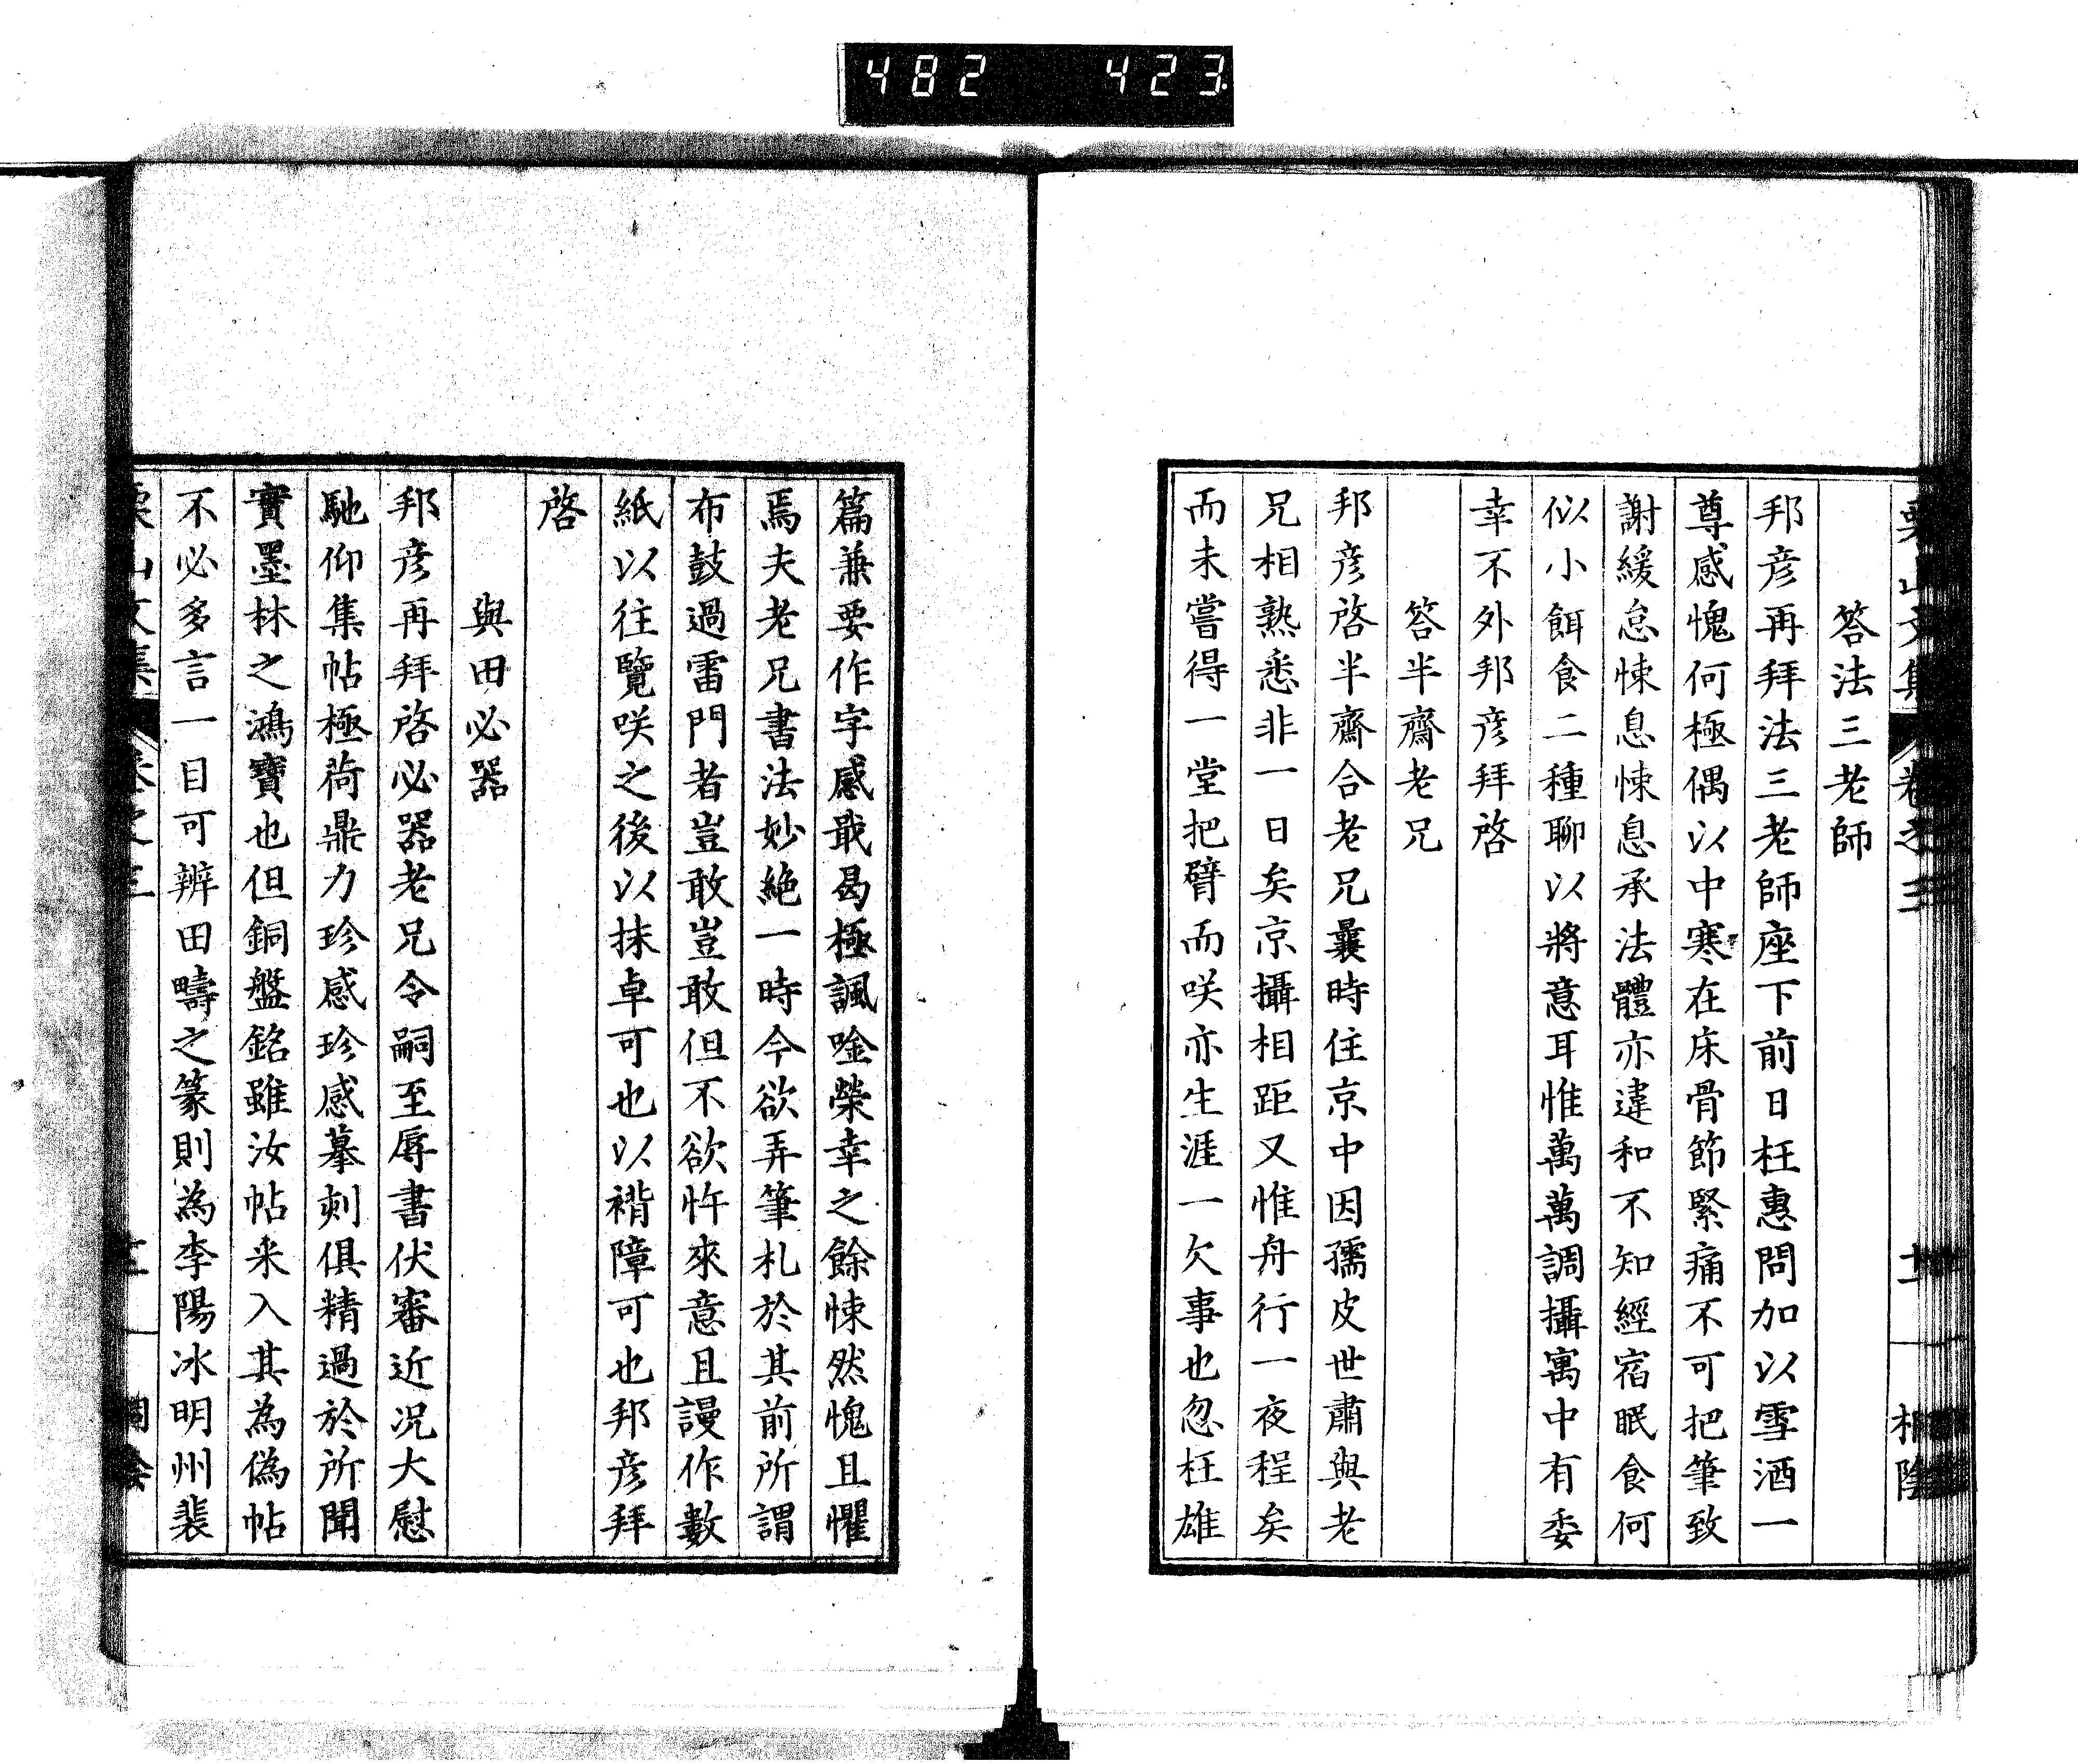 482 423
答法三老師
邦彦再拜法三老師座下前日枉惠問加以雪酒一
尊感愧何極偶以中寒在床骨節緊痛不可把筆致
謝緩怠悚息悚息承法體亦違和不知經宿眠食何
似小餌食二種聊以將意耳惟萬萬調攝寓中有委
幸不外邦彦拜啓
答半齋老兄
邦彦啓半齋合老兄曩時住京中因孺皮世肅與老
兄相熟悉非一日矣京攝相距又惟舟行一夜程矣
而未嘗得一堂把臂而咲亦生涯一欠事也忽枉雄
篇兼要作字感戢曷極諷唫榮幸之餘悚然愧且懼
焉夫老兄書法妙絶一時今欲弄筆札於其前所謂
布鼓過雷門者豈敢豈敢但不欲忤來意且謾作數
紙以往覽咲之後以抹卓可也以褙障可也邦彦拜
啓
與田必器
邦彦再拜啓必器老兄令嗣至辱書伏審近況大慰
馳仰集帖極荷鼎力珍感珍感摹刻俱精過於所聞
實墨林之鴻寶也但銅盤銘雖汝帖来入其為偽帖
不必多言一目可辨田疇之篆則為李陽冰明州裴
栗山文集 卷之三